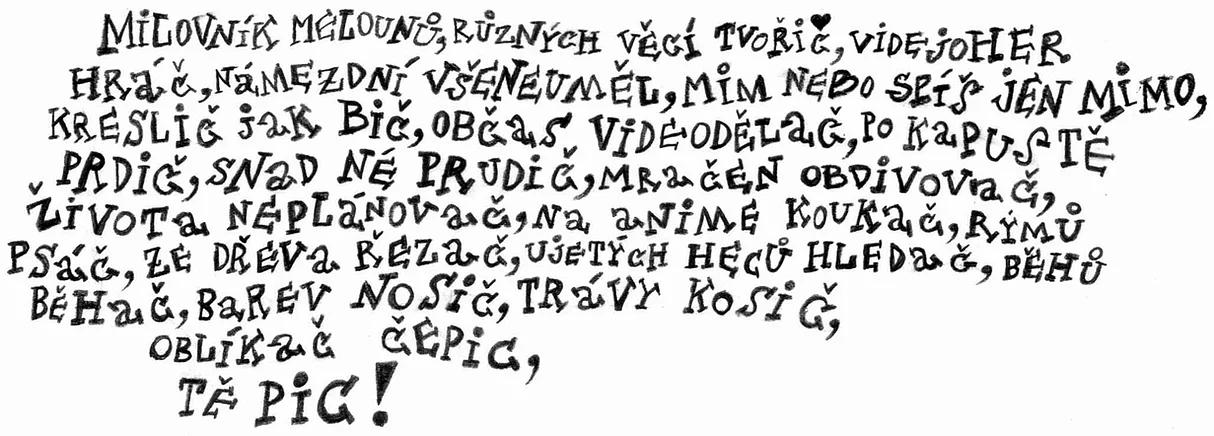 MILOVNÍK MELOUNŮ, RŮZNÝCH VĚCÍ TVOŘIČ, VIDEJOHER
HRÁČ, NÁMEZDNÍ VŠENEUMĚL, MIM NEBO SPÍŠ JEN MIMO,
KRESLIČ JAK BIČ, OBČAS VIDEODĚLAČ, PO KAPUSTĚ
PRDIČ, SNAD NE PRUDIČ, MRAČEN OBDIVOVAČ,
ŽIVOTA NEPLÁNOVAČ, NA ANIME KOUKAČ, RÝMŮ
PSÁČ, ZE DŘEVA ŘEZAČ, UJETÝCH HECŮ HLEDAČ, BĚHŮ
BĚHAČ, BAREV NOSIČ, TRÁVY KOSIČ,
OBLÍKAČ ČEPIC,
TĚ PIC!